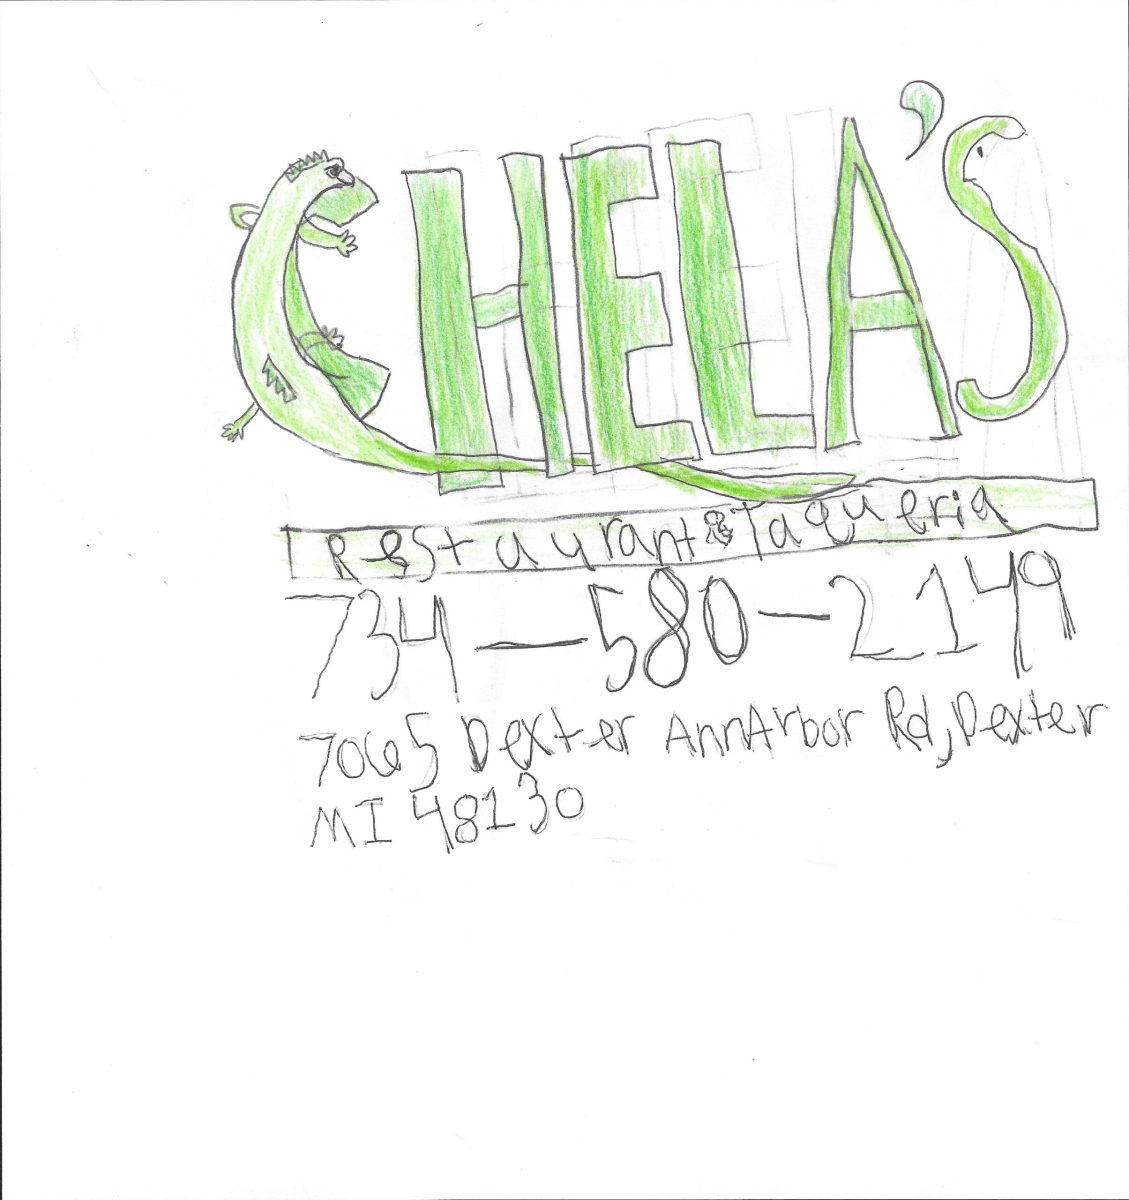 CHELA'S
Restaurant & Taqueria
734-580-2149
7065 Dexter AnnArbor Rd, Dexter
MI 48130